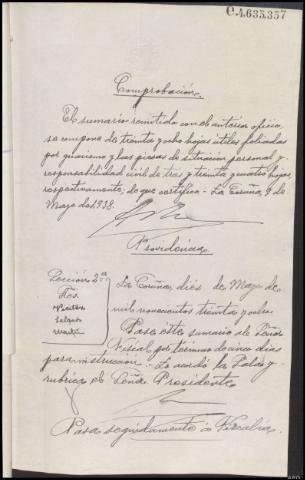 C.4.635.357
Comprobación.
El sumario remitido con el anterior oficio,
se compone de treinta y ocho hojas útiles foliadas
por guarismo y las piezas de situación personal y
responsabilidad civil de tres y treinta y cuatro hojas,
respectivamente, de que certifico.- La Coruña, 9 de
Mayo de 1938.
Providencia
Sección 2ª
Sres.
La Coruña, diez de Mayo de
mil novecientos treinta y ocho.
Pase este sumario al Señor
Fiscal por término de cinco días
para instrucción.- Lo acordó la Sala y
rubrica el Señor Presidente
Pasa seguidamente a Fiscalía.